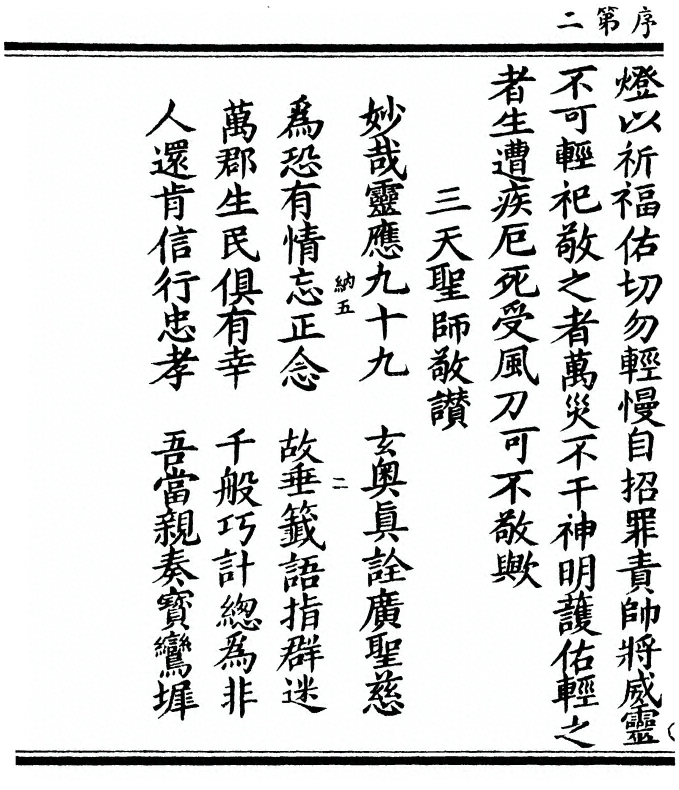 序第二
燈以祈福佑切勿輕慢自招罪責帥將威靈
不可輕祀敬之者萬災不干神明護佑輕之
者生遭疾厄死受風刀可不敬歟
三天聖師敬讃
妙哉靈應九十九　玄奧眞詮廣聖慈
納五　二
爲恐有情忘正念　故垂籤語指群迷
萬郡生民俱有幸　千般巧計縂爲非
人還肯信行忠孝　吾當親奏寳鸞墀